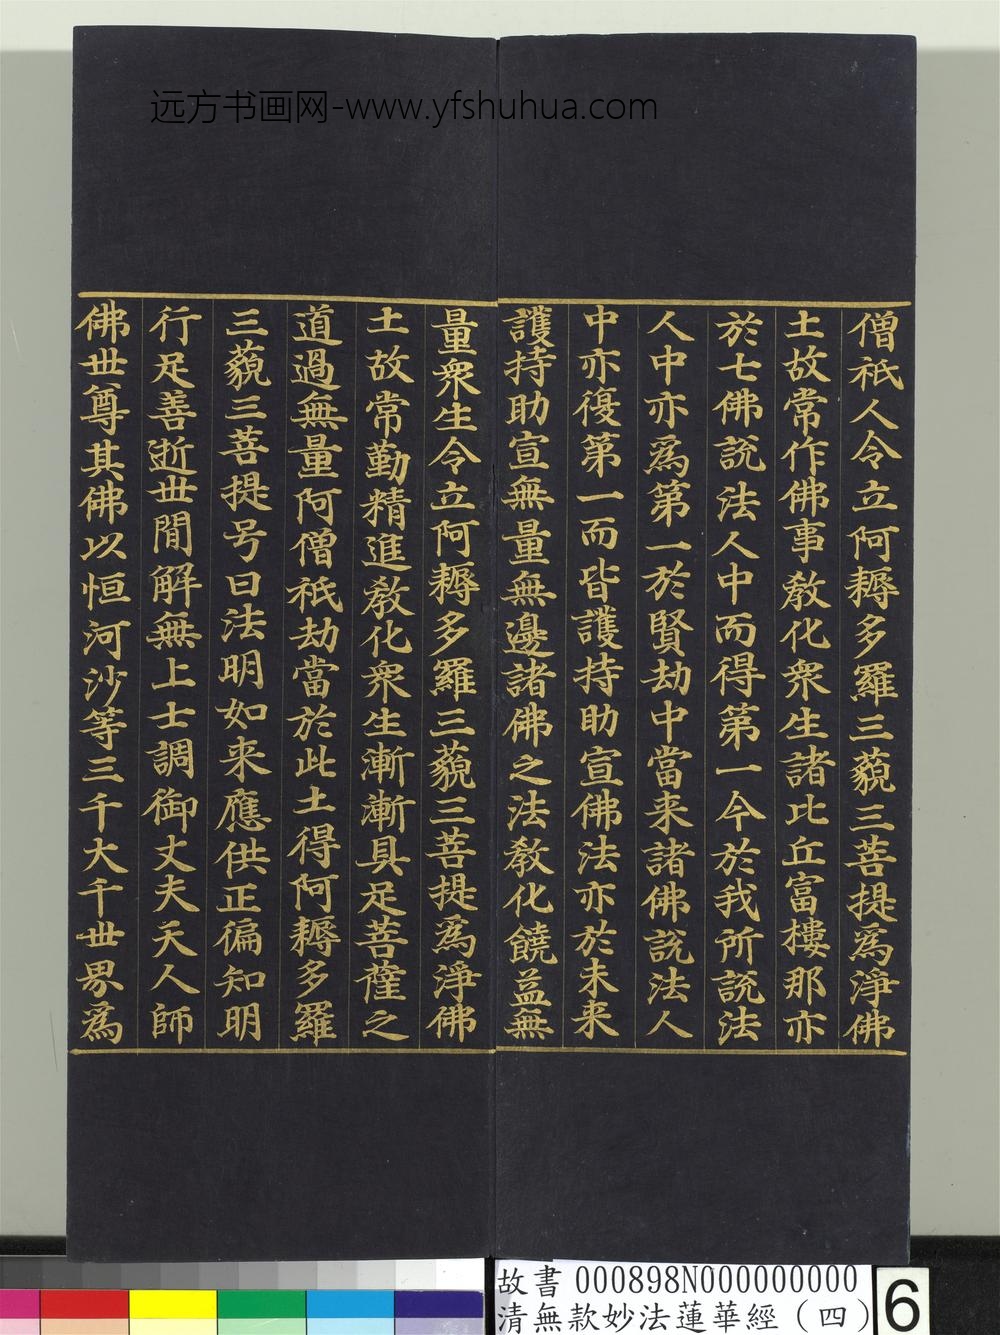 远方书画网-www.yfshuhua.com
僧祇人令立阿耨多羅三藐三菩提爲淨佛
土故常作佛事教化衆生諸比丘富樓那亦
於七佛說法人中而得第一今於我所說法
人中亦爲第一於賢劫中當来諸佛說法人
中亦復第一而皆護持助宣佛法亦於未来
護持助宣無量無邊諸佛之法教化饒益無
量衆生令立阿耨多羅三藐三菩提爲淨佛
土故常勤精進教化衆生漸漸具足菩薩之
道過無量阿僧祇劫當於此土得阿耨多羅
三藐三菩提号曰法明如来應供正徧知明
行足善逝世間解無上士調御丈夫天人師
佛世尊其佛以恒河沙等三千大千世界爲
故書 000898N000000000
清無款妙法蓮華經（四）
6